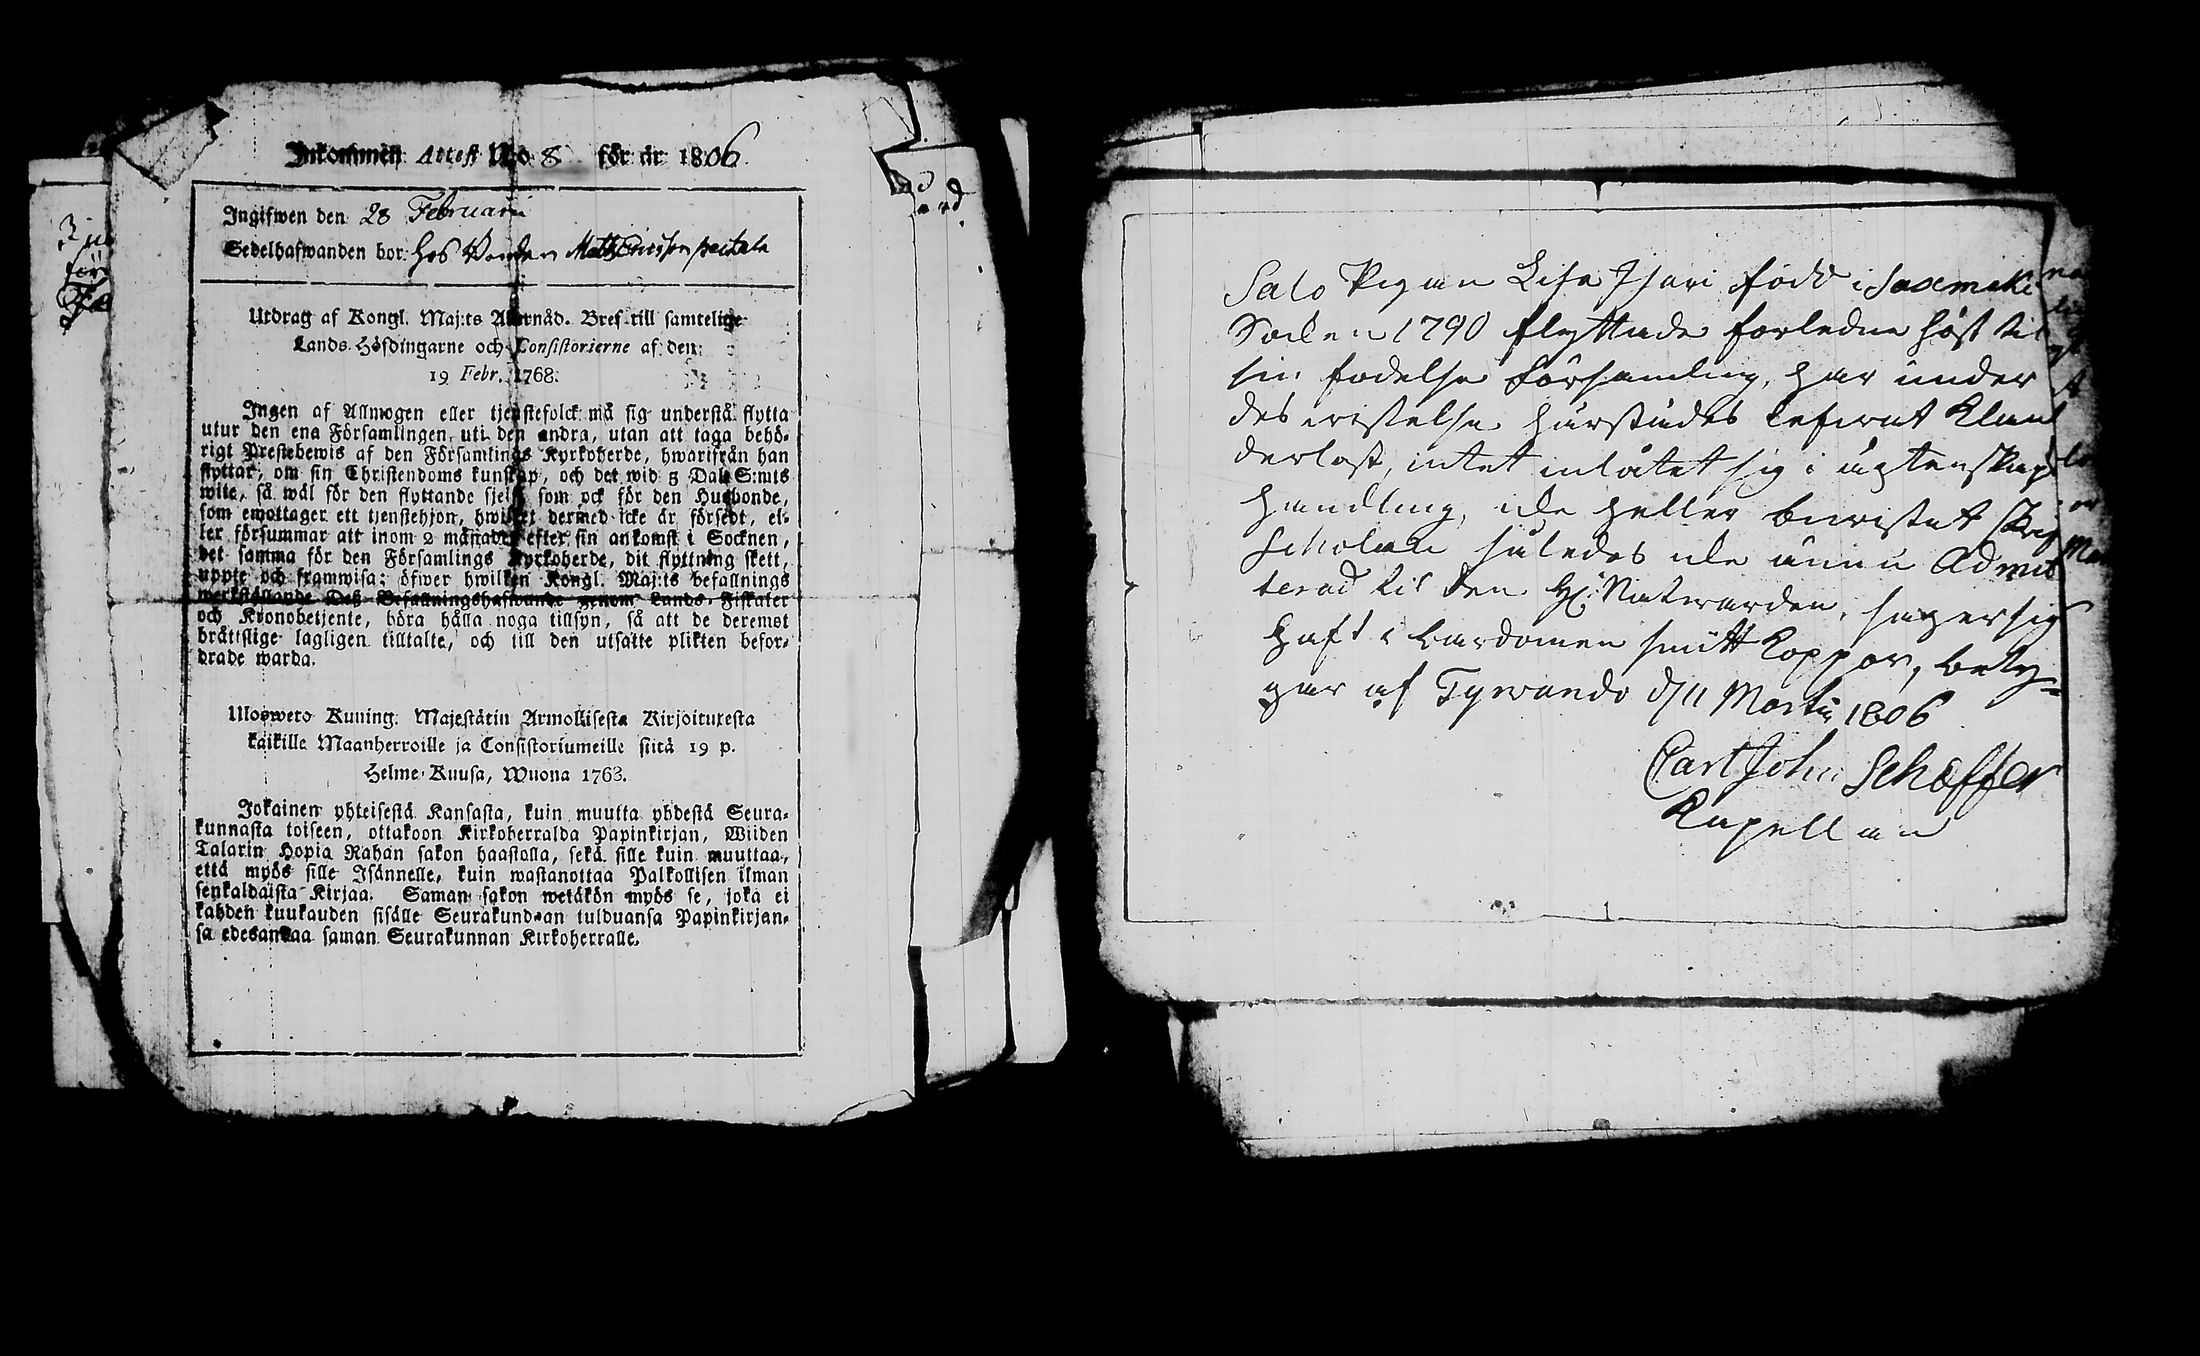 Inkommen Attest No 8 för år 1806.
Ingifwen den 28 Februarii
Sedelhafwanden bor hos Bonden Matts Ericsson
Utdrag af Kongl. Maj:ts Allernåd. Bref till samtelige
Lands-Höfdingarne och Consistorierne af den
19 Febr. 1768.
Ingen af Allmogen eller tjenstefolck må sig understå flytta
utur den ena Församlingen uti den andra, utan att taga behö-
rigt Prestebewis af den Församlings Kyrkoherde, hwarifrån han
flyttar, om sin Christendoms kunskap, och det wid 5 Dal. S:mts
wite, så wäl för den flyttande sjelf, som ock för den Husbonde,
som emottager ett tjenstehjon, hwilket dermed icke är försedt, el-
ler försummar att inom 2 månader efter sin ankomst i Socknen,
det samma för den Församlings Kyrkoherde, dit flyttning skett,
uppte och framwisa; öfwer hwilken Kongl. Maj:ts befallnings
werkställande Deß Befallningshafwande genom Lands-Fiskaler
och Kronobetjente, böra hålla noga tillsyn, så att de deremot
bråttslige lagligen tilltalte, och till den utsatte plikten befor-
drade warda.
Ulosweto Kuning. Majestätin Armollisesta Kirjoituxesta
kaikille Maanherroille ja Consistoriumeille siitä 19 p.
Helme-Kuusa, Wuona 1763.
Jokainen yhteisestä Kansasta, kuin muutta yhdestä Seura-
kunnasta toiseen, ottakoon Kirkoherralda Papinkirjan, Wiiden
Talarin Hopia Rahan sakon haastolla, sekä sille kuin muuttaa,
että myös sille Isännelle, kuin wastanottaa Palkollisen ilman
senkaldaista Kirjaa. Saman sakon wetäkön myös se, joka ei
kahden kuukauden sisälle Seurakundaan tulduansa Papinkirjan-
sa edesandaa saman Seurakunnan Kirkoherralle.
Salo Pigan Lisa Isari född i Saxmäki
Socken 1790 flyttade förledne höst til
sin födelse församling, har under
des wistelse härstädes lefwat Klan
derlöst, intet inlåtit sig i ägtenskaps
handling, icke heller biwistat Skrift
Scholan således icke ännu Admit
terad til den H: Natwarden, säger sig
haft i barndomen smått Koppor, bety-
gar af Tyrwändö d 11 Martii 1806
Carl John Schæffer
Kapellan